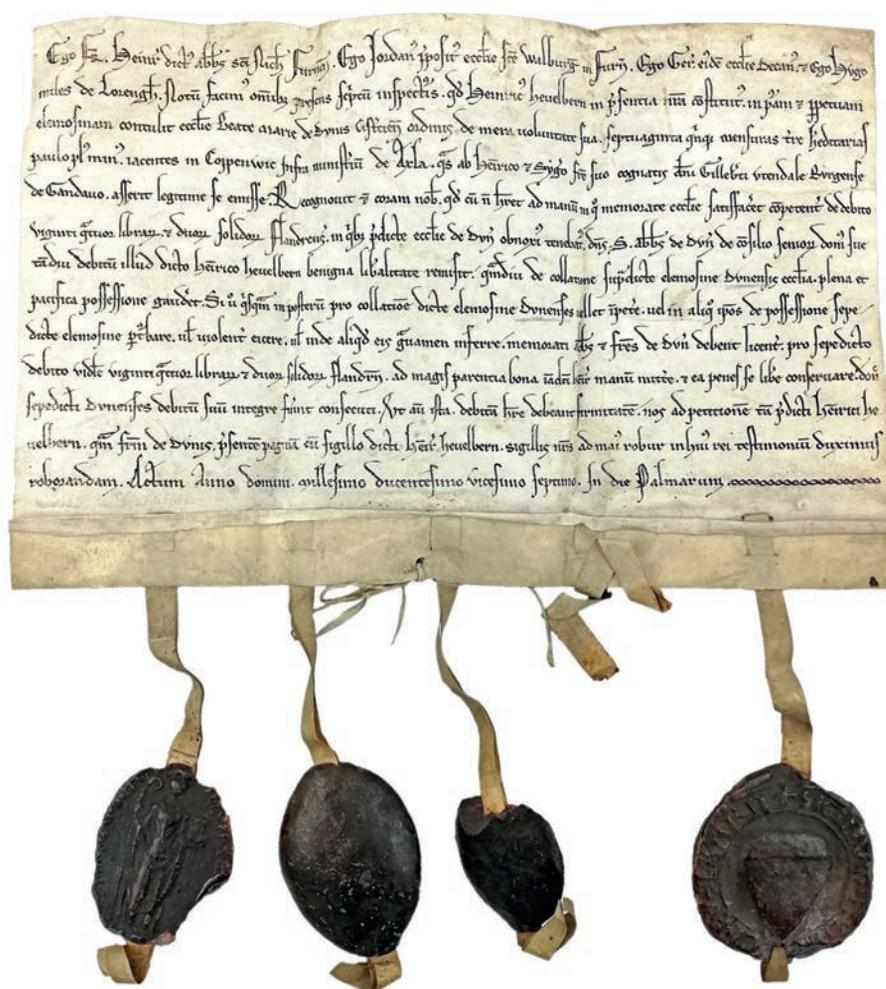 Ego Fr̄. Henr̄ dict' abb̄s sc̄i Nich̄ Furnē. Ego Jordan' p̄posit' eccl̄ie sc̄e Walburḡ in furn̄. Ego Ger̄ eiđe eccl̄ie Decan'. & Ego Hugo
miles de Lorengh̄. Notū facim' omīb' p̄sens sc̄ptū inspectur̄. qđ Henric' heuelbern in p̄sentia nr̄a cōstitut'. in pām & ppetuam
elemosinam contulit eccl̄ie Beate marie de Dvnis Cistcien̄ ordinis de mera voluntate sua. septuaginta q̄nq; mensuras t̄re h̄editarias
paulo pl' min'. iacentes in Coppenwic infra ministiū de Axla. q̄s ab hēnrico & fr̄e suo cognatis dn̄i Gilleb̄ti vtendale Burgense
de Gandauo. asserit legitime se emisse. Recognouit & coram nob̄. qđ cū ñ hr̄et ad manū in q̄ memorate eccl̄ie satisfac̄et cōpetent̄ de debito
viginti q̄tuor librar̄. & duor̄ solidor̄ flandrens̄. in q̄b' p̄dicte eccl̄ie de Dvn̄ obnoxi' tenebat̄. dn̄s. S. abb̄s de Dvn̄ de cōsilio senior̄ dom' sue
tādiu debitū illud dicto hēnrico heuelbern benigna lib̄alitate remisit. q̄mdiu de collatione sup̄dicte elemosine Dvnensis eccl̄ia. plena et
pacifica possessione gaud̄et. Si ů q̄sq̄m in posterū pro collatiōe dicte elemosine Dvnenses uellet īpet̄e. uel in aliq̄ ip̄os de possessione sepe
dicte elemosine p̄t̄bare. ul̄ violent̄ eicere. ul̄ inde aliq̄đ eis g̃uamen inferre. memorati abb̄s & fr̄es de Dvn̄ debent licent̄. pro sepedicto
debito videl̄t viginti q̄tuor librar̄ & duor̄ solidor̄ flandr̄n. ad magis parentia bona manū mitt̄e. & ea penes se lib̄e conseruare. donc̄
sepedicti Dvnenses debitū suū integre fu̇int consecuti. Vt aū ista. debitā hr̄e debeant firmitatē. nos ad petitionē tā p̄dicti hēnrici he
uelbern. q̄m fr̄m de Dvnis. p̄sentē paginā cū sigillo dicti hēnr̄ heuelbern. sigillis nr̄is ad mai' robur in hui' rei testimoniū duximus
roborandam. Actum Anno domini. millesimo ducentesimo vicesimo septimo. In die Palmarum